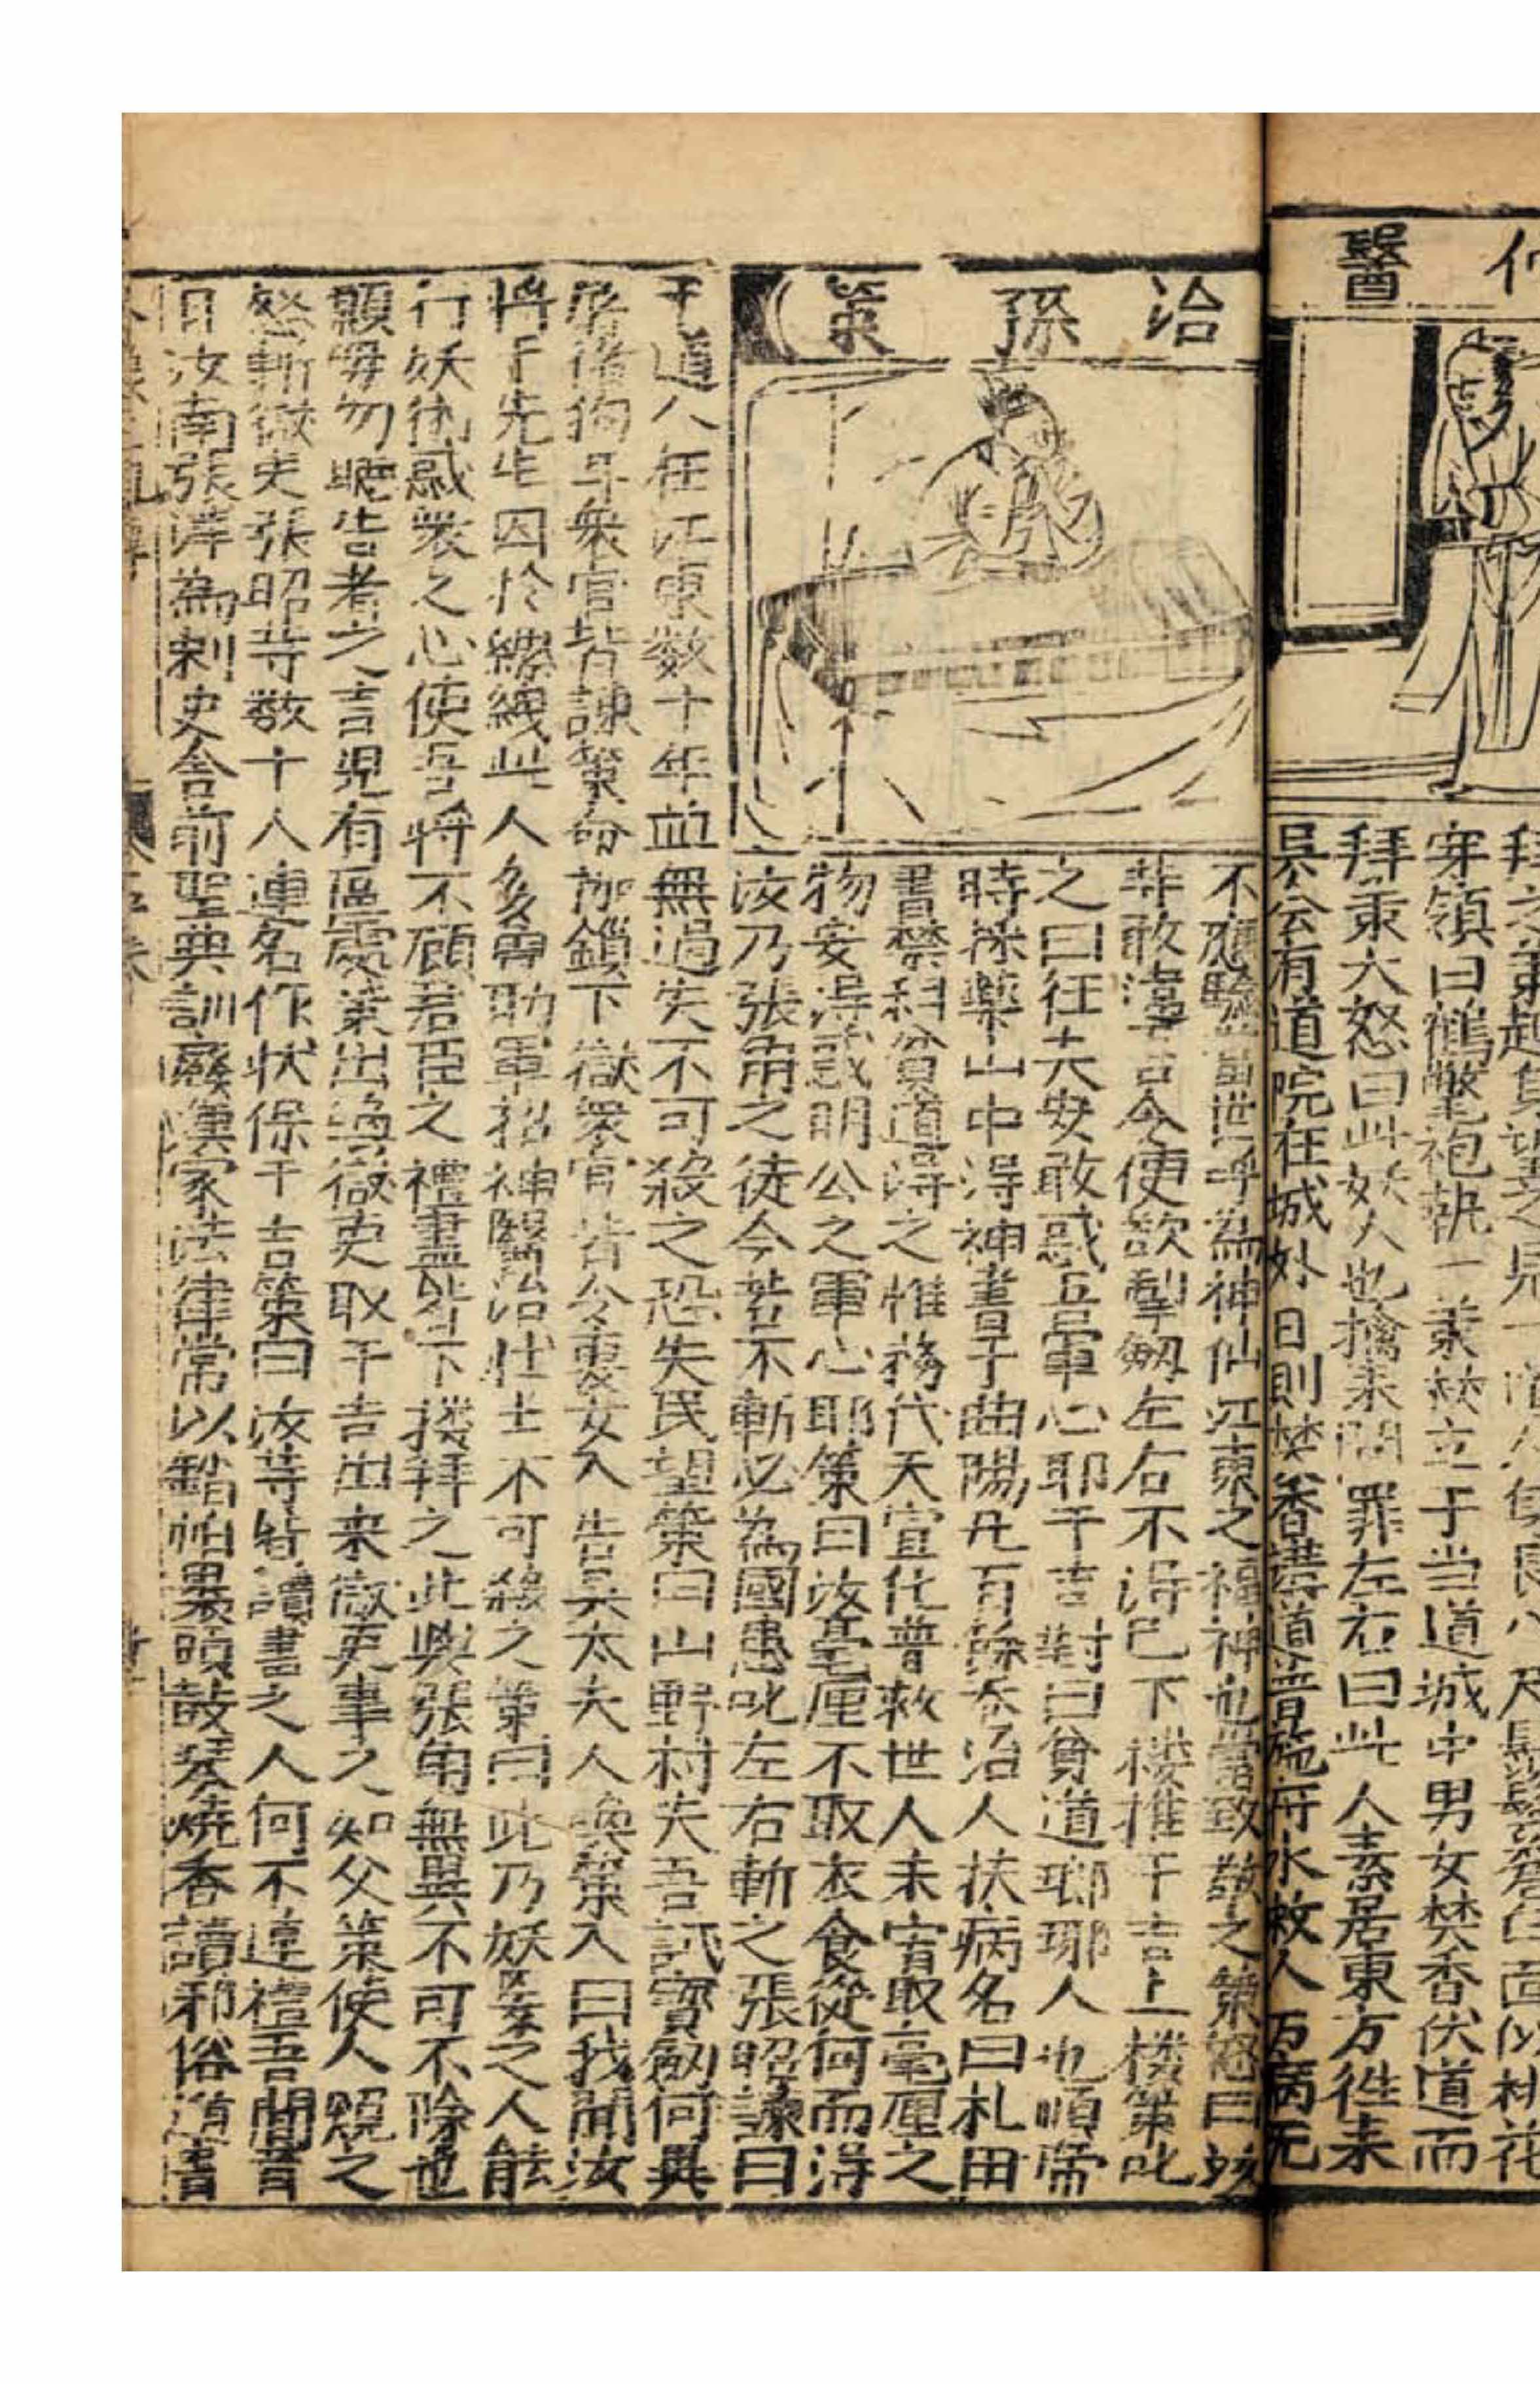 醫
拜
穿領曰鶴氅袍執一藜杖立于当道城中男女焚香伏道而
拜策大怒曰此妖人也擒来問罪左右曰此人素居東方徃来
吳会有道院在城外日則焚香講道普施符水救人万病无
治孫策
不應驗當世呼為神仙江東之福神也當致敬之策怒曰妓
等敢違吾令便欲掣劔左右不得已下楼推于吉上楼策叱
之曰狂夫安敢惑吾軍心耶干吉對曰貧道瑯琊人也順帝
時採藥山中得神書于曲陽凡百餘卷治人扶病名曰札田
書禁科貧道得之惟務代天宣化普救世人未甞取毫厘之
物安得惑明公之軍心耶策曰汝毫厘不取衣食從何而得
汝乃張角之徒今若不斬必為國患叱左右斬之張昭諫曰
于道人在江東数十年並無過失不可殺之恐失民望策曰山野村夫吾試寳劔何異
屠猪狗耳衆官皆諫策命枷鎖下獄衆官皆令妻女入告吴太夫人喚策入曰我聞汝
将于先生囚於縲絏此人多曾助軍招神醫治壮士不可殺之策曰此乃妖妄之人能
行妖術惑衆之心使吾将不顧君臣之禮盡皆下楼拜之此與張角無異不可不除也
願毋勿聴告者之言児有區處策出喚獄吏取干吉出来獄吏事之如父策使人覘之
怒斬獄吏張昭等数十人連名作状保干吉策曰汝等皆讀書之人何不達禮吾聞昔
日汝南張津為刺史舎前聖典訓廢漢家法律常以絳帕裹頭鼓琴燒香讀邪俗道書